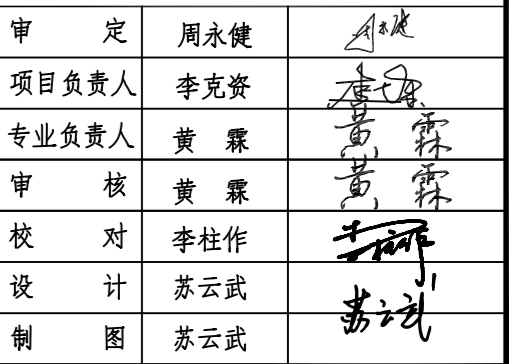 审 定 周永健 周永健
项目负责人 李克资
专业负责人 黄 霖 黄 霖
审 核 黄 霖 黄 霖
校 对 李柱作 李柱作
设 计 苏云武 苏云武
制 图 苏云武